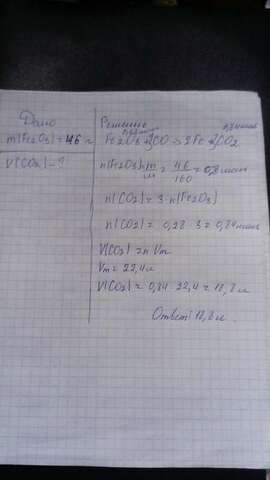 Дано
Решение
m(Fe2O3) = 46 г
Fe2O3 + 3CO -> 2Fe + 3CO2
V(CO2) - ?
n(Fe2O3) = m/M = 46/160 = 0,28 моль
n(CO2) = 3 · n(Fe2O3)
n(CO2) = 0,28 · 3 = 0,84 моль
V(CO2) = n · Vm
Vm = 22,4 л
V(CO2) = 0,84 · 22,4 = 18,8 л
Ответ: 18,8 л.